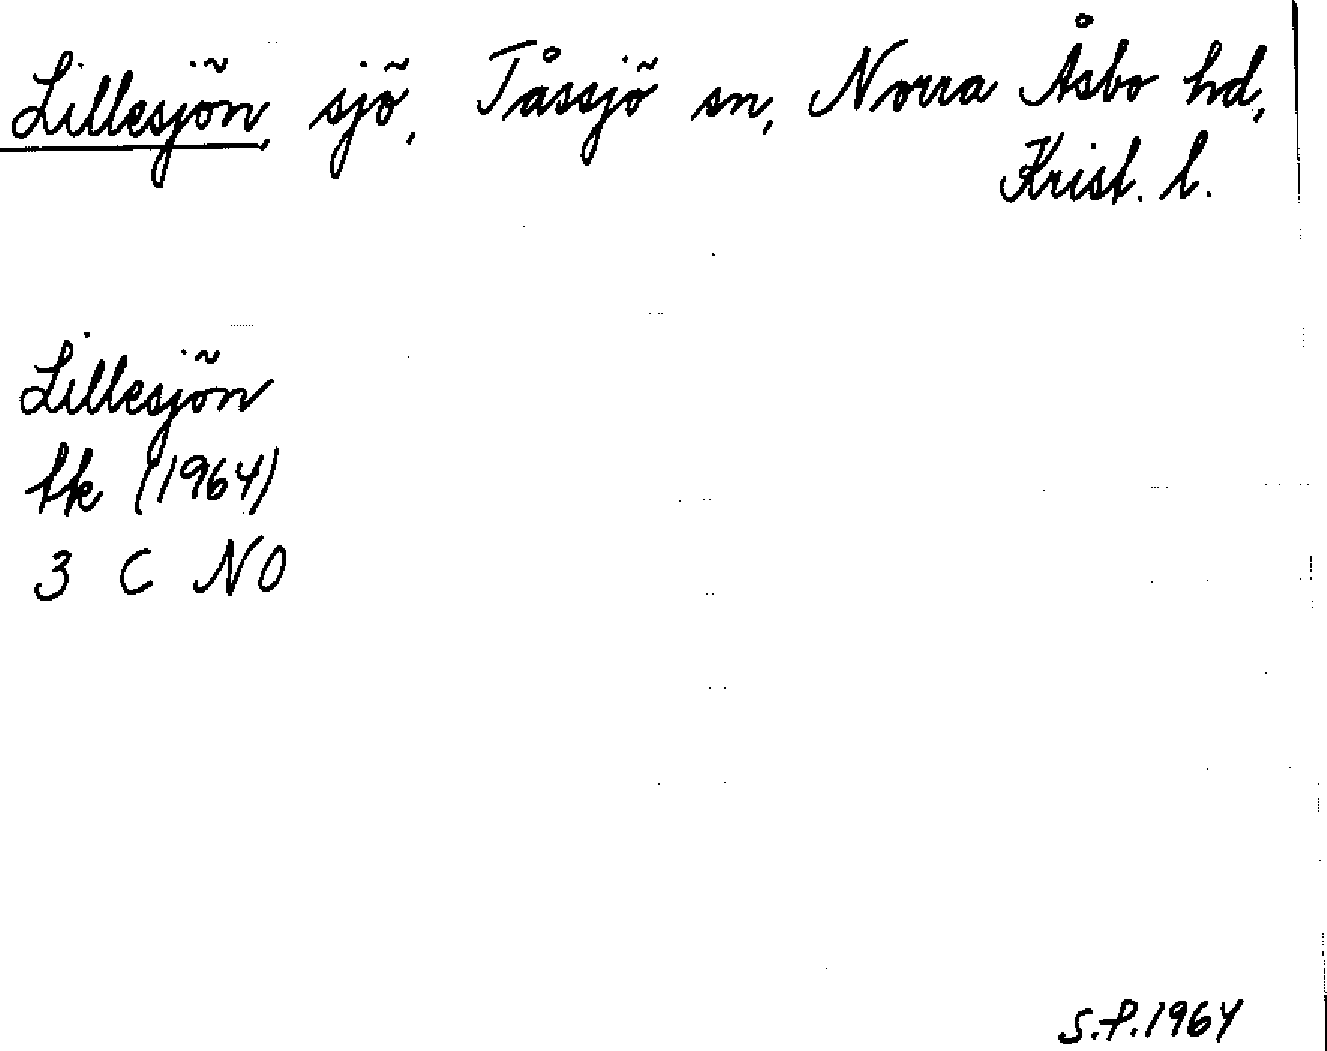 Lillesjön, sjö, Tåssjö sn, Norra Åsbo hd,
Krist. l.
Lillesjön
tk (1964)
3 C NO
S.P.1964